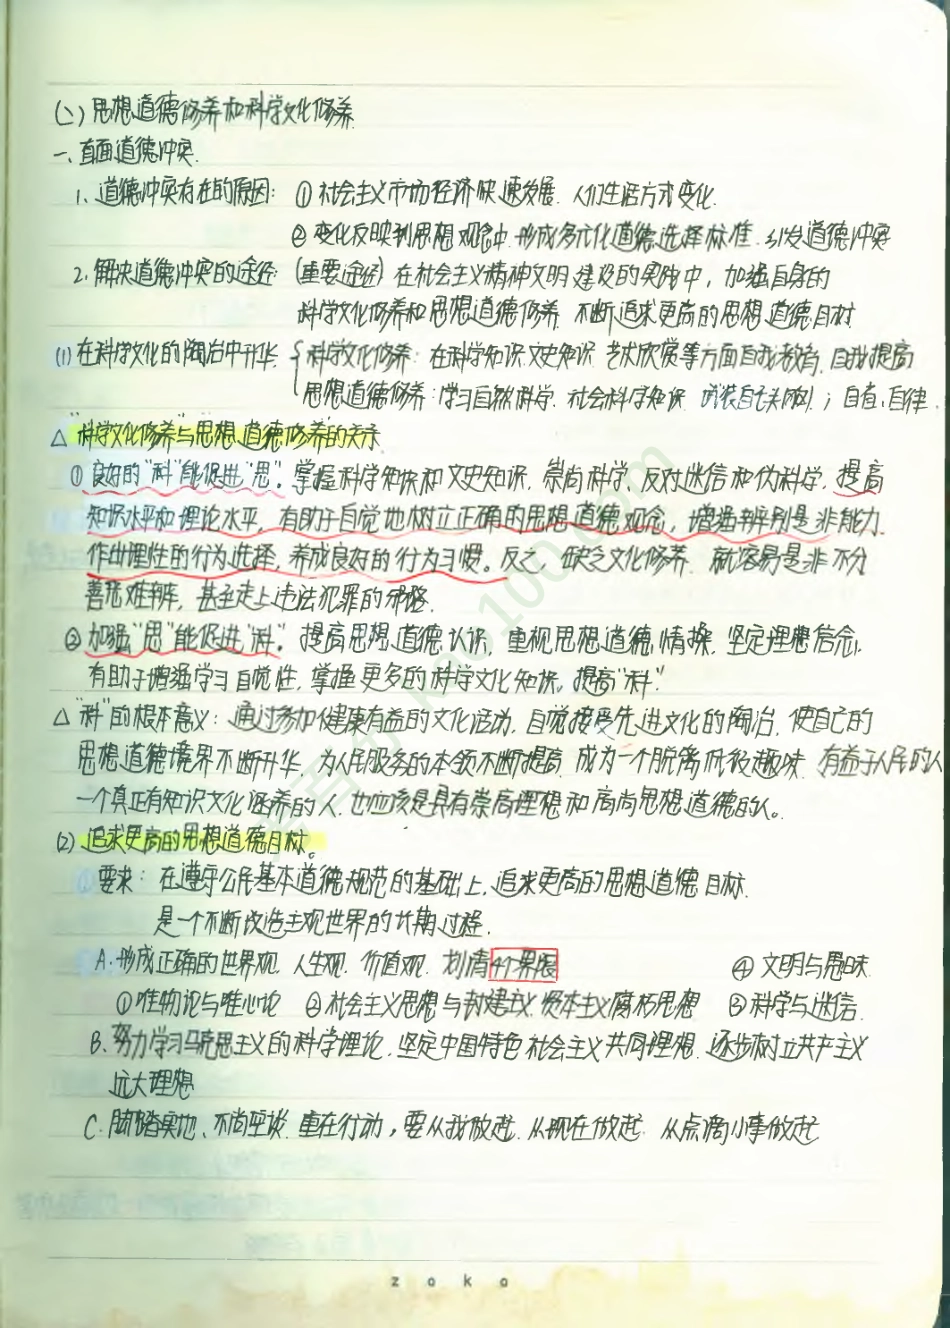 (二) 思想道德修养和科学文化修养
一、直面道德冲突.
1、道德冲突存在的原因: ① 社会主义市场经济快速发展. 人们生活方式变化.
② 变化反映到思想观念中. 形成多元化道德选择标准. 引发道德冲突
2. 解决道德冲突的途径: (重要途径) 在社会主义精神文明建设的实践中, 加强自身的
科学文化修养和思想道德修养. 不断追求更高的思想道德目标.
(1) 在科学文化的陶冶中升华. { 科学文化修养: 在科学知识.文史知识. 艺术欣赏等方面自我教育. 自我提高
思想道德修养: 学习自然科学. 社会科学知识. 武装自己头脑; 自查、自律.
△ "科学文化修养"与思想道德修养的关系
① 良好的"科"能促进"思". 掌握科学知识和文史知识. 崇尚科学. 反对迷信和伪科学. 提高
知识水平和理论水平, 有助于自觉地树立正确的思想道德观念, 增强辨别是非能力.
作出理性的行为选择, 养成良好的行为习惯。反之, 缺乏文化修养. 就容易是非不分
善恶难辨, 甚至走上违法犯罪的邪路.
② 加强"思"能促进"科". 提高思想道德认识, 重视思想道德情操, 坚定理想信念,
有助于增强学习自觉性, 掌握更多的科学文化知识。提高"科".
△ "科"的根本意义: 通过参加健康有益的文化活动, 自觉接受先进文化的陶冶. 使自己的
思想道德境界不断升华. 为人民服务的本领不断提高. 成为一个脱离低级趣味. 有益于人民的人
一个真正有知识文化涵养的人. 也应该是具有崇高理想和高尚思想道德的人。
(2) 追求更高的思想道德目标。
① 要求: 在遵守公民基本道德规范的基础上, 追求更高的思想道德目标.
是一个不断改造主观世界的长期过程.
A. 形成正确的世界观. 人生观. 价值观. 划清4个界限 ④ 文明与愚昧.
① 唯物论与唯心论 ② 社会主义思想与封建主义.资本主义腐朽思想 ③ 科学与迷信.
B. 努力学习马克思主义的科学理论, 坚定中国特色社会主义共同理想. 逐步树立共产主义
远大理想
C. 脚踏实地、不尚空谈. 重在行动, 要从我做起. 从现在做起. 从点滴小事做起.
考百分 kao100.com
zoko